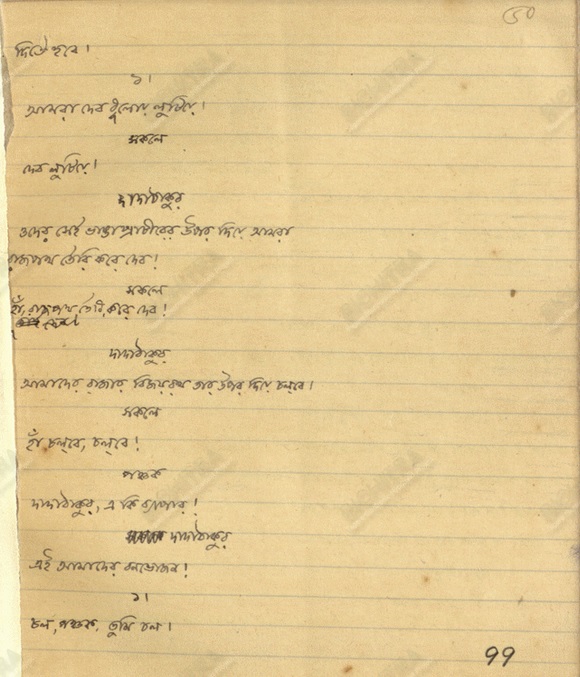 ৫০
দিতে হবে।
১।
আমরা দেব ধূলোয় লুটিয়ে!
সকলে
দেব লুটিয়ে!
দাদাঠাকুর
ওদের সেই ভাঙা প্রাচীরের উপর দিয়ে আমরা
রাজপথ তৈরি করে দেব!
সকলে
হাঁ, রাজপথ তৈরি করে দেব!
দাদাঠাকুর
আমাদের রাজার বিজয়রথ তার উপর দিয়ে চলবে।
সকলে
হাঁ চল্‌বে, চল্‌বে!
পঞ্চক
দাদাঠাকুর, এ কি ব্যাপার!
দাদাঠাকুর
এই আমাদের বনভোজন!
১।
চল, পঞ্চক, তুমি চল।
99